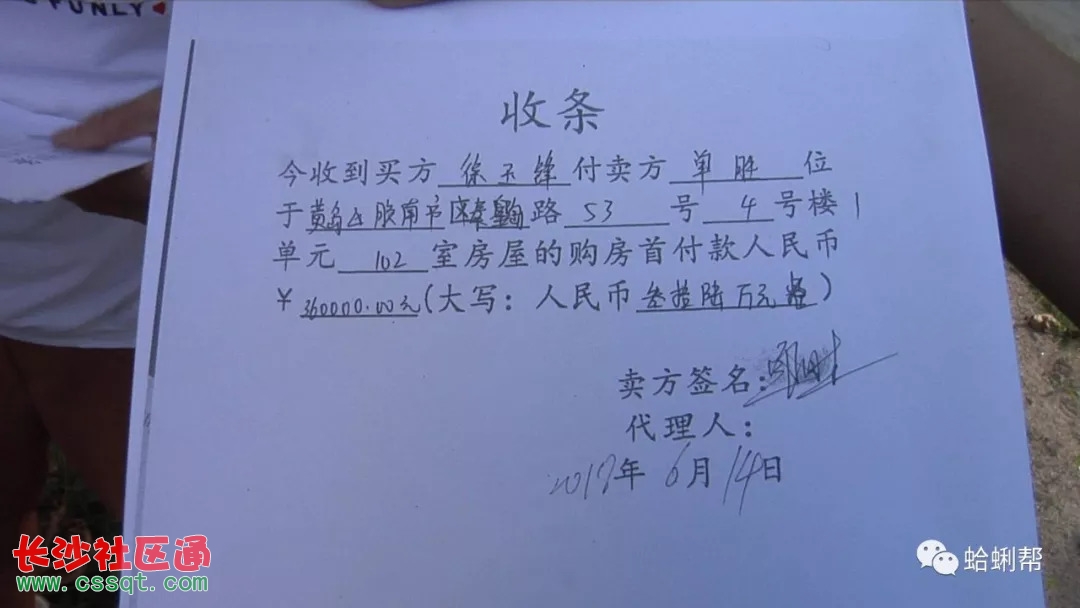 FUNLY
收条
今收到买方 徐玉锋 付卖方 单胜 位
于黄岛区胶南市 路 53 号 4 号楼1
单元 102 室房屋的购房首付款人民币
¥ 360000.00元(大写：人民币叁拾陆万元整)
卖方签名：
代理人：
2017年 6月 14日
长沙社区通
www.cssqt.com
蛤蜊帮